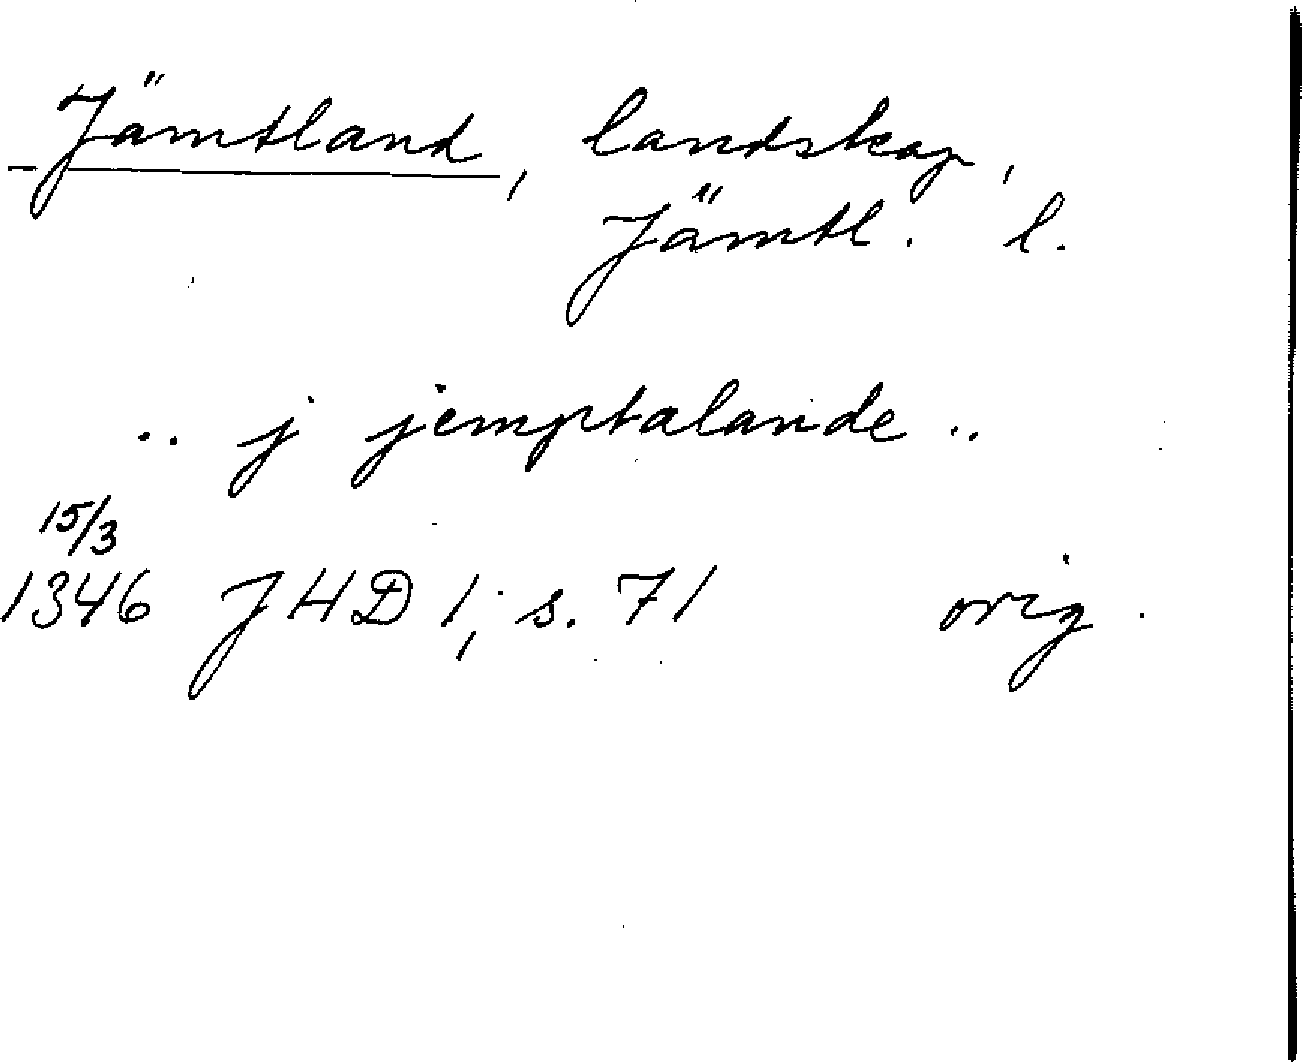 Jämtland, landskap,
Jämtl. l.
.. j jemptalande ..
15/3
1346 JHD 1, s. 71 orig.